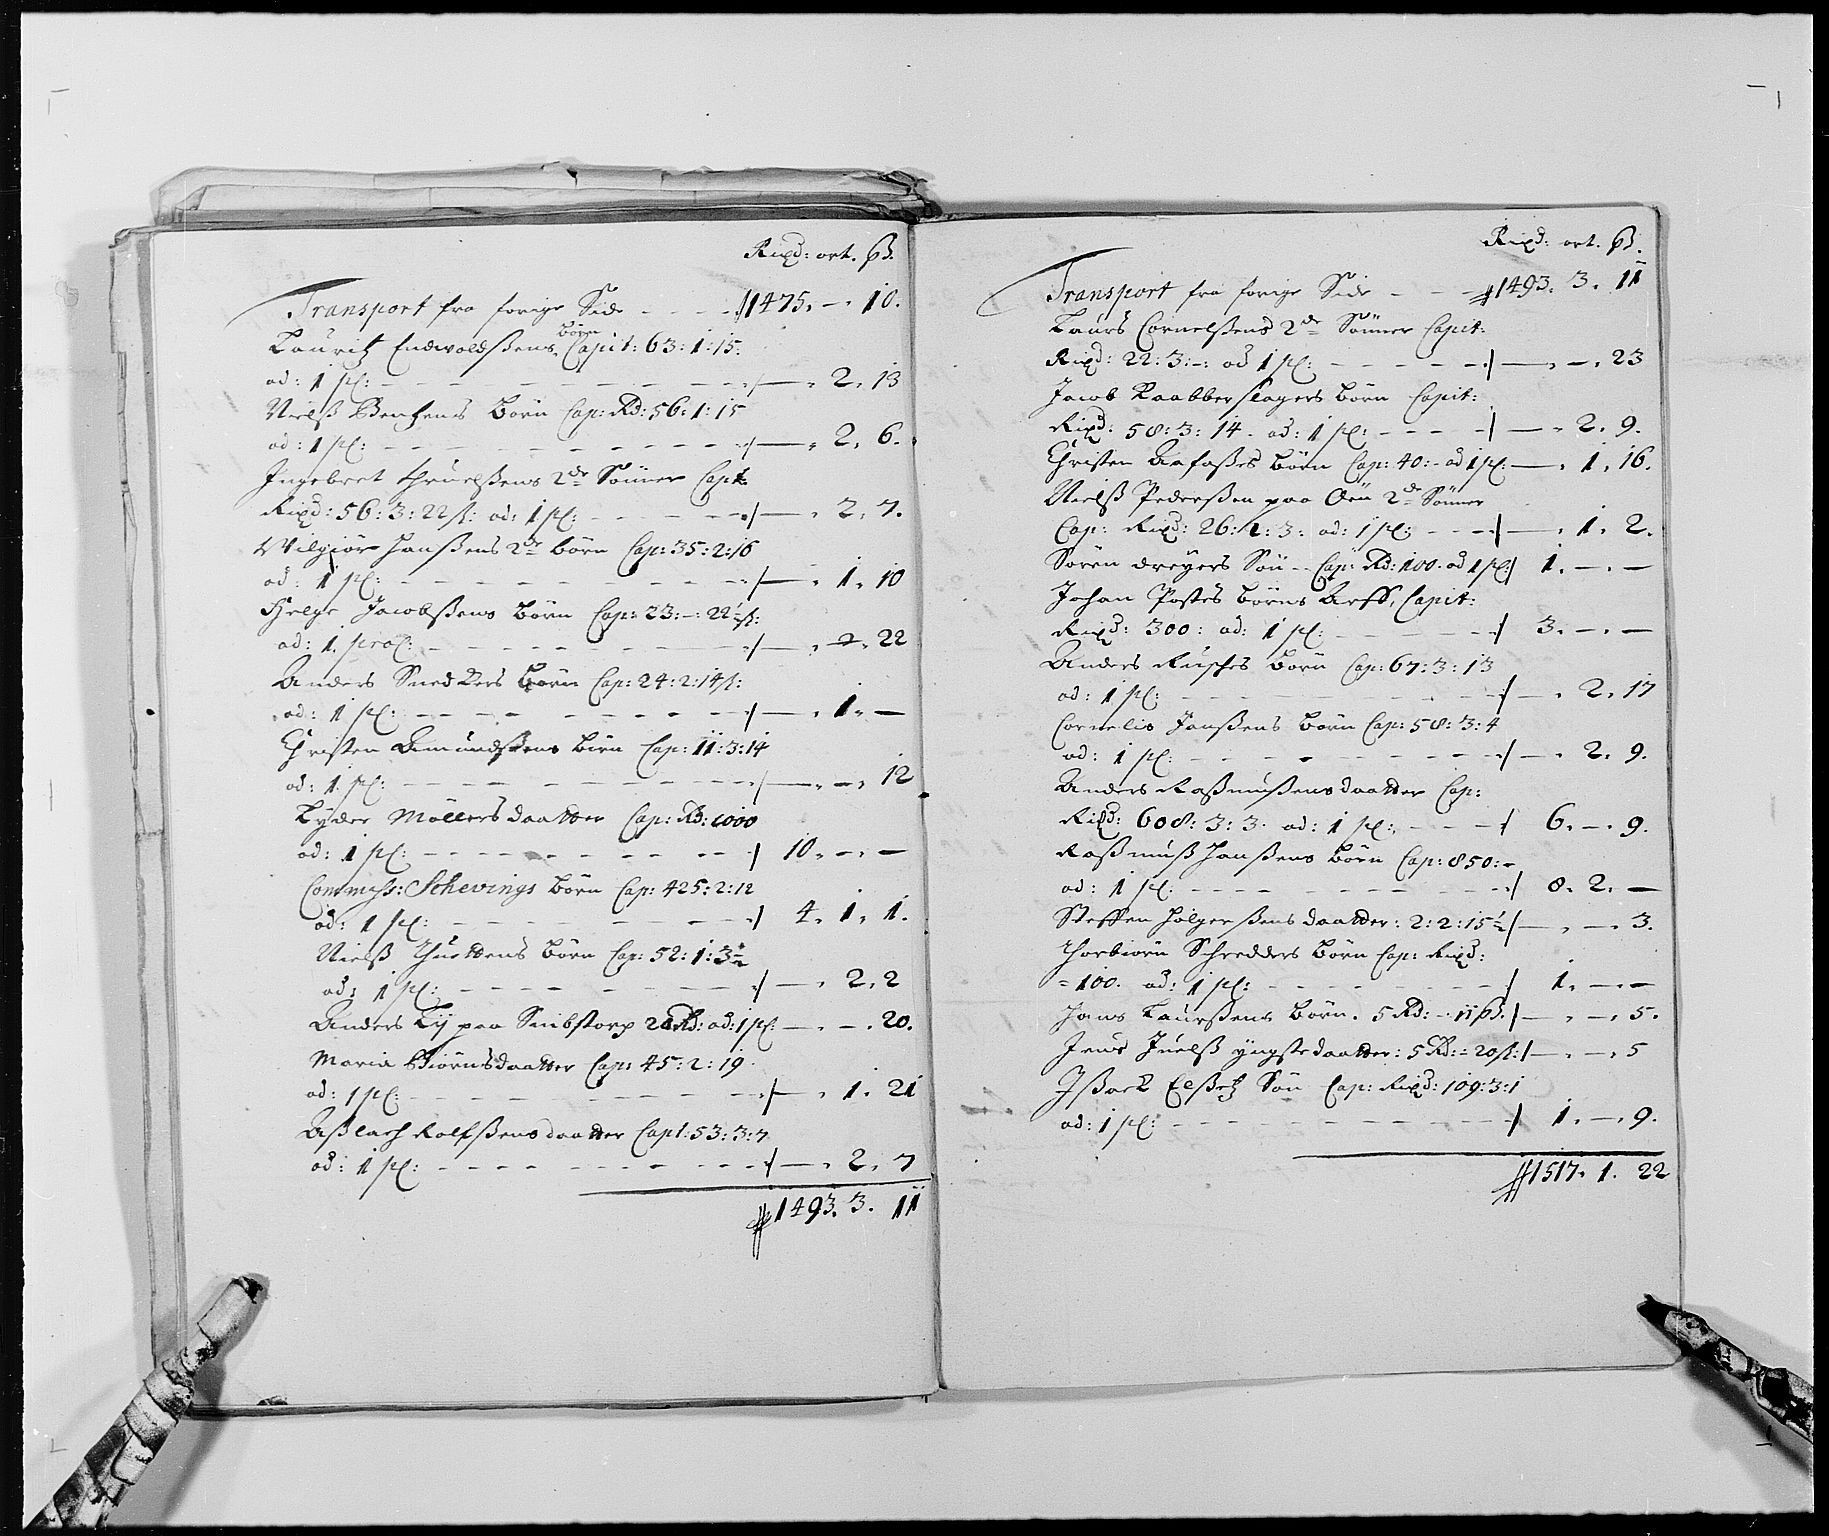 Rixd: ort. ß.
Transport fra forige Side - - - 1475. -. 10.
Børn
Lauritz Endvoldßens Capit: 63:1:15.
ad: 1 pC: - - - - - - - - - /. — . 2. 13
Nielß Bentzens Børn Cap: Rd: 56:1:15
ad: 1 pC: - - - - - - - - - /. — . 2. 6.
Ingebret Truelßens 2de Sønner Capit:
Rixd: 56:3:22 s: ad: 1 pC: - - - - /. — . 2. 7.
Wilgiør Hanßens 2de børn Cap: 35:2:16
ad: 1 pC: - - - - - - - - - /. — . 1. 10
Helge Jacobßens Børn Cap: 23:-:22½ s:
ad: 1. proC: - - - - - - - - /. — . -. 22
Anders Snedkers Børn Cap: 24:2:14 s:
ad: 1 pC: - - - - - - - - - /. — . 1. —
Christen Amundßens børn Cap: 11:3:14
ad: 1. pC: - - - - - - - - - /. — . -. 12
Lyder Møllers daatter Cap: Rd: 1000
ad: 1 pC: - - - - - - - - /. 10. -. —
Commiss: Schevings Børn Cap: 425:2:12
ad: 1 pC: - - - - - - - - /. 4. 1. 1.
Nielß Børn Cap: 52:1:3½
ad: 1 pC: - - - - - - - - /. — . 2. 2
Anders Lÿ paa Snibstorp Rd: ad: 1 pC: — . -. 20.
Maria Biørnsdaatter Cap: 45:2:19
ad: 1 pC: - - - - - - - - - /. — . 1. 21
Aßlach Rolfßens daatter Capt: 53:3:7
ad: 1 pC: - - - - - - - - - /. — . 2. 7
1493. 3. 11
Rixd: ort. ß.
Transport fra forige Side - - - 1493. 3. 11
Laurs Cornelßens 2de Sønner Capit:
Rixd: 22:3:-: ad 1 pC: - - - - - /. — . -. 23
Jacob Kaabberslagers Børn Capit:
Rixd: 58:3:14. ad: 1 pC: - - - - /. — . 2. 9.
Christen Børn Cap: 40:- ad 1 pC: — . 1. 16.
Nielß Pederßen paa Øen 2de Sønner
Cap: Rixd: 26:1:3: ad: 1 pC: - - - /. — . 1. 2.
Søren dreyers Søn - Cap: Rd: 100. ad 1 pC: / 1. -. —
Johan Postes børns Arff, Capit:
Rixd: 300: ad: 1 pC: - - - - - - / 3. -. —
Anders Børn Cap: 67:3:13
ad: 1 pC: - - - - - - - - - /. — . 2. 17
Cornelis Janßens Børn Cap: 58:3:4
ad: 1 pC: - - - - - - - - - /. — . 2. 9.
Anders Raßmußens daatter Cap:
Rixd: 608:3:3. ad: 1 pC: - - - - / 6. -. 9.
Raßmuß Hanßens Børn Cap: 850:-
ad: 1 pC: - - - - - - - - - / 8. 2. —
Steffen Holgerßens daatter: 2:2:15½ /. — . -. 3.
Thorbiørn Schredders Børn Cap: Rixd:
=100. ad: 1 pC: - - - - - - - / 1. -. —
Hans Laurßens Børn. 5 Rd: -. 11 ß. /. — . -. 5.
Jens Juelß yngste daatter: 5 Rd: = 20 s: /. — . -. 5
Ißack Elßetz Søn Cap: Rixd: 109:3:1
ad: 1 pC: - - - - - - - - - / 1. -. 9.
1517. 1. 22